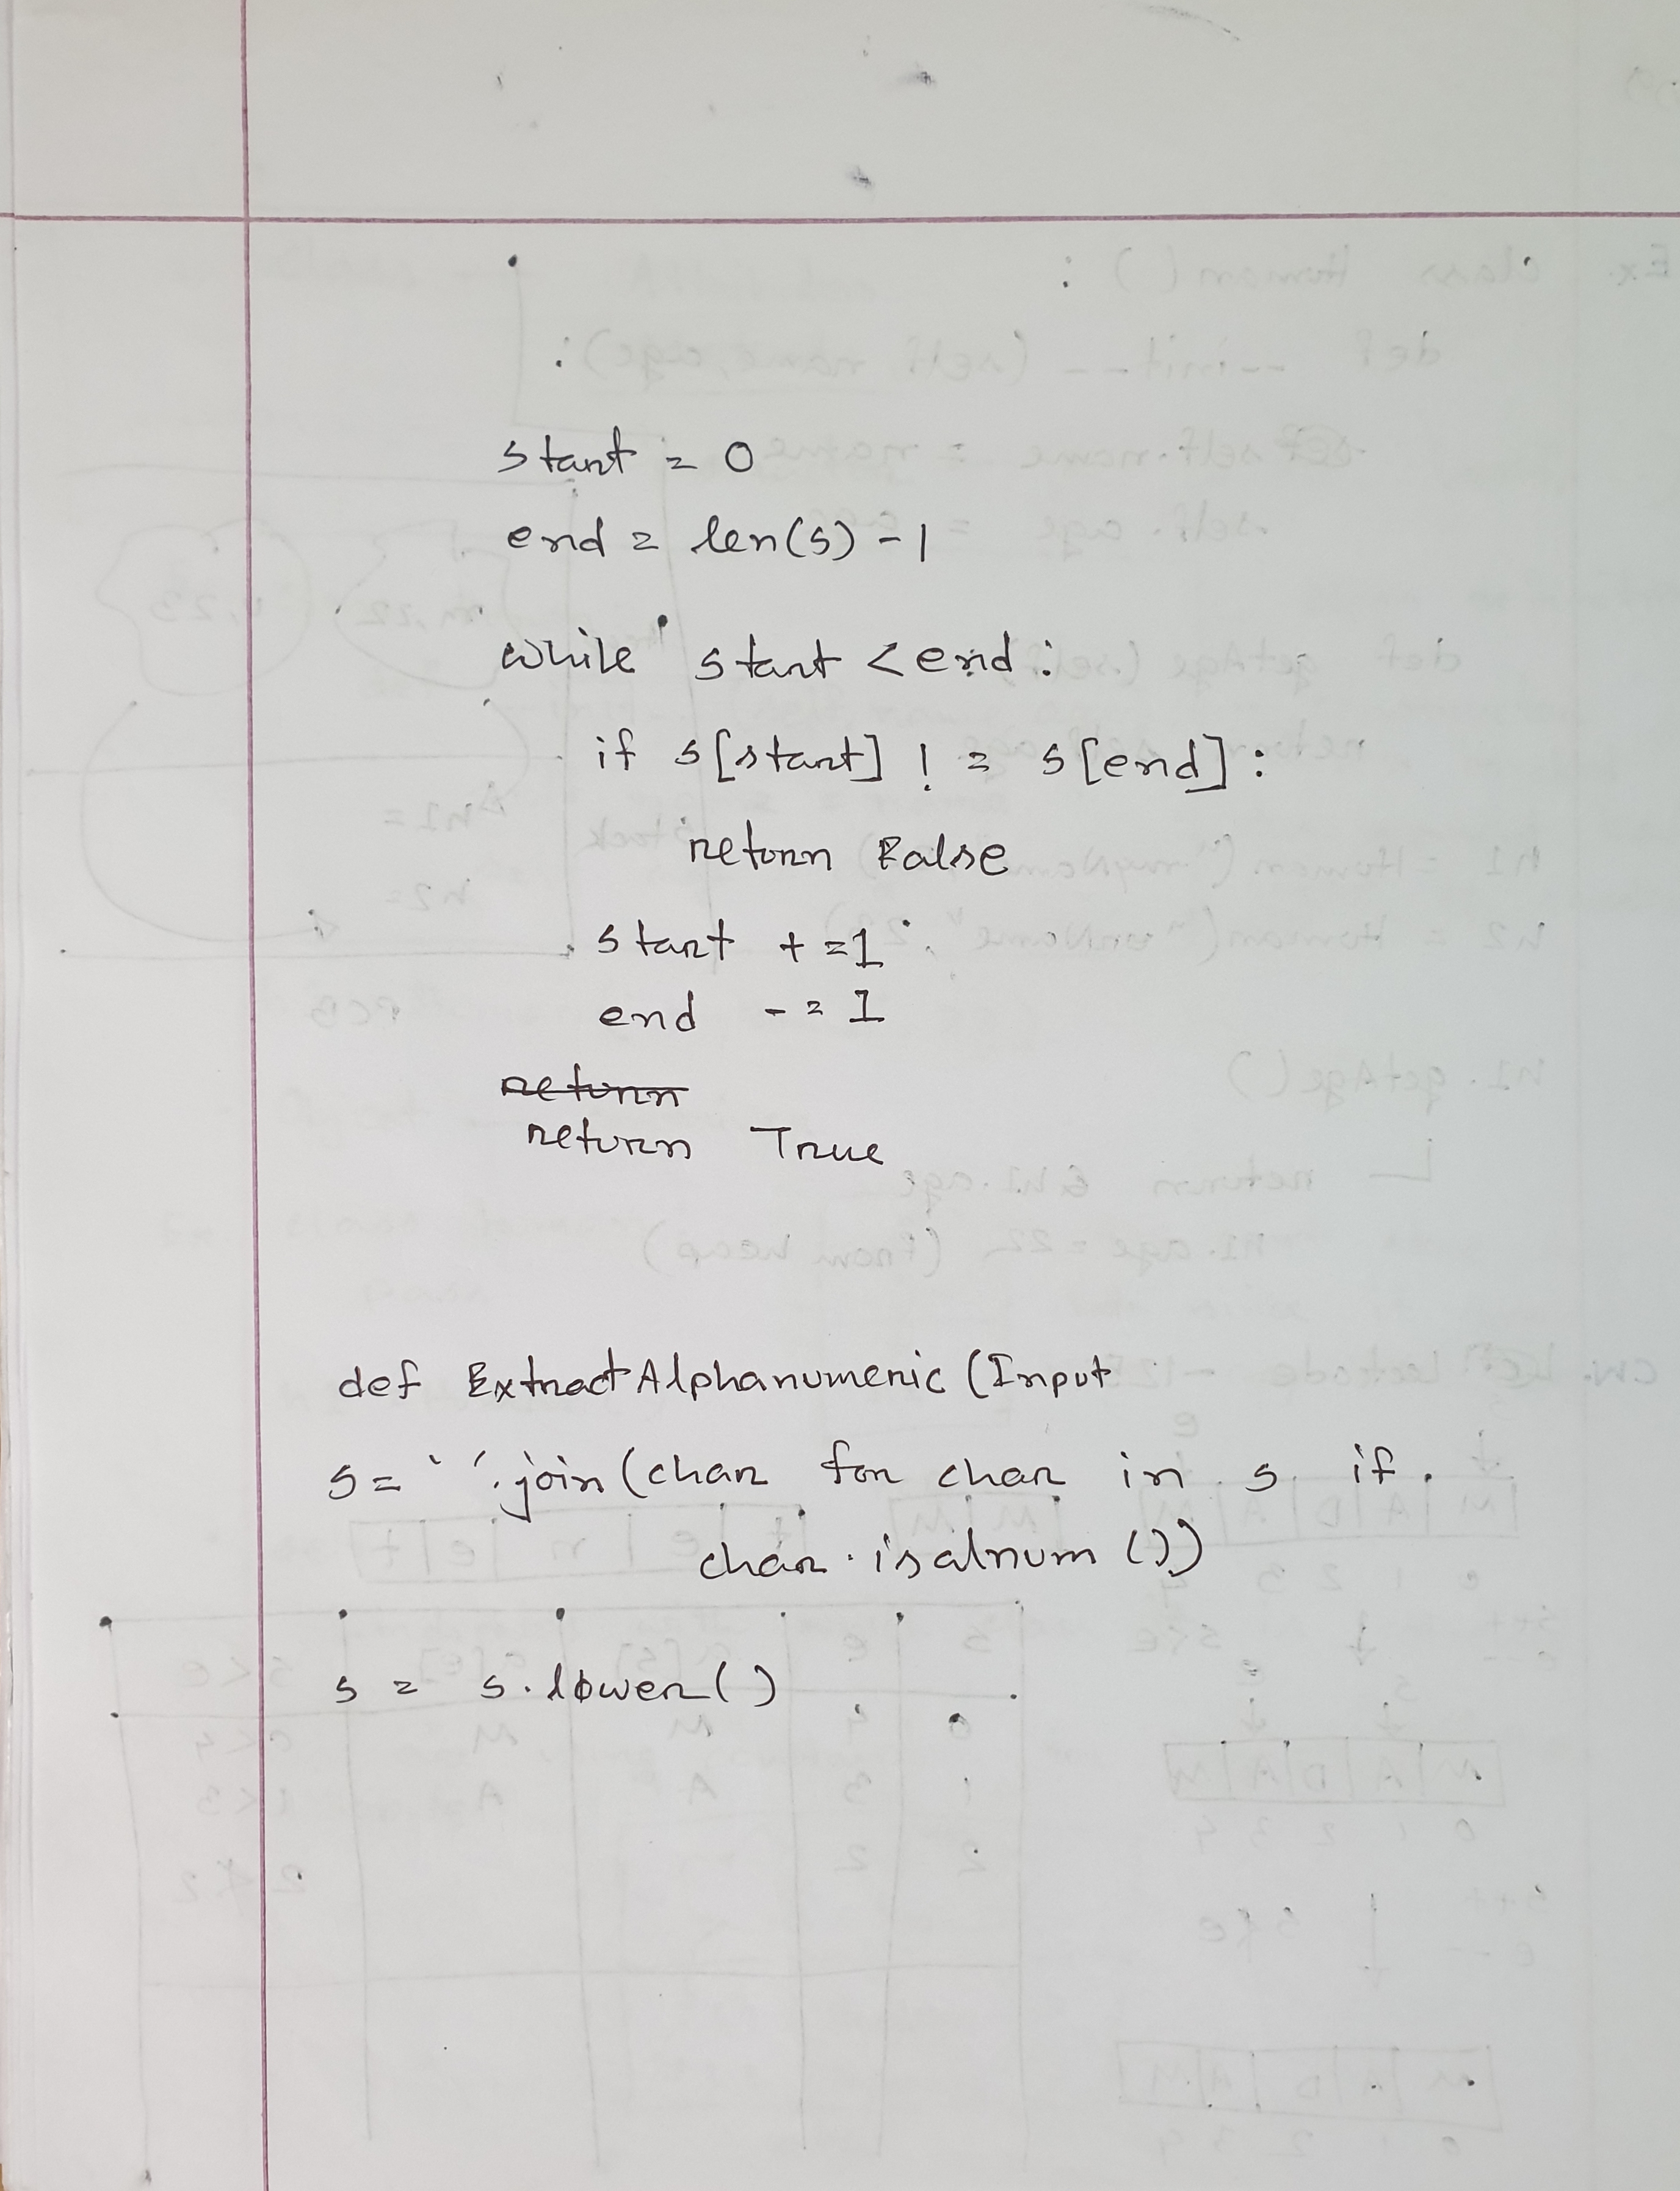 start = 0
end = len(s) - 1
while start < end:
if s[start] != s[end]:
return False
start += 1
end -= 1
return
return True
def ExtractAlphanumeric (Input
s = ' '.join(char for char in s if
char.isalnum())
s = s.lower()